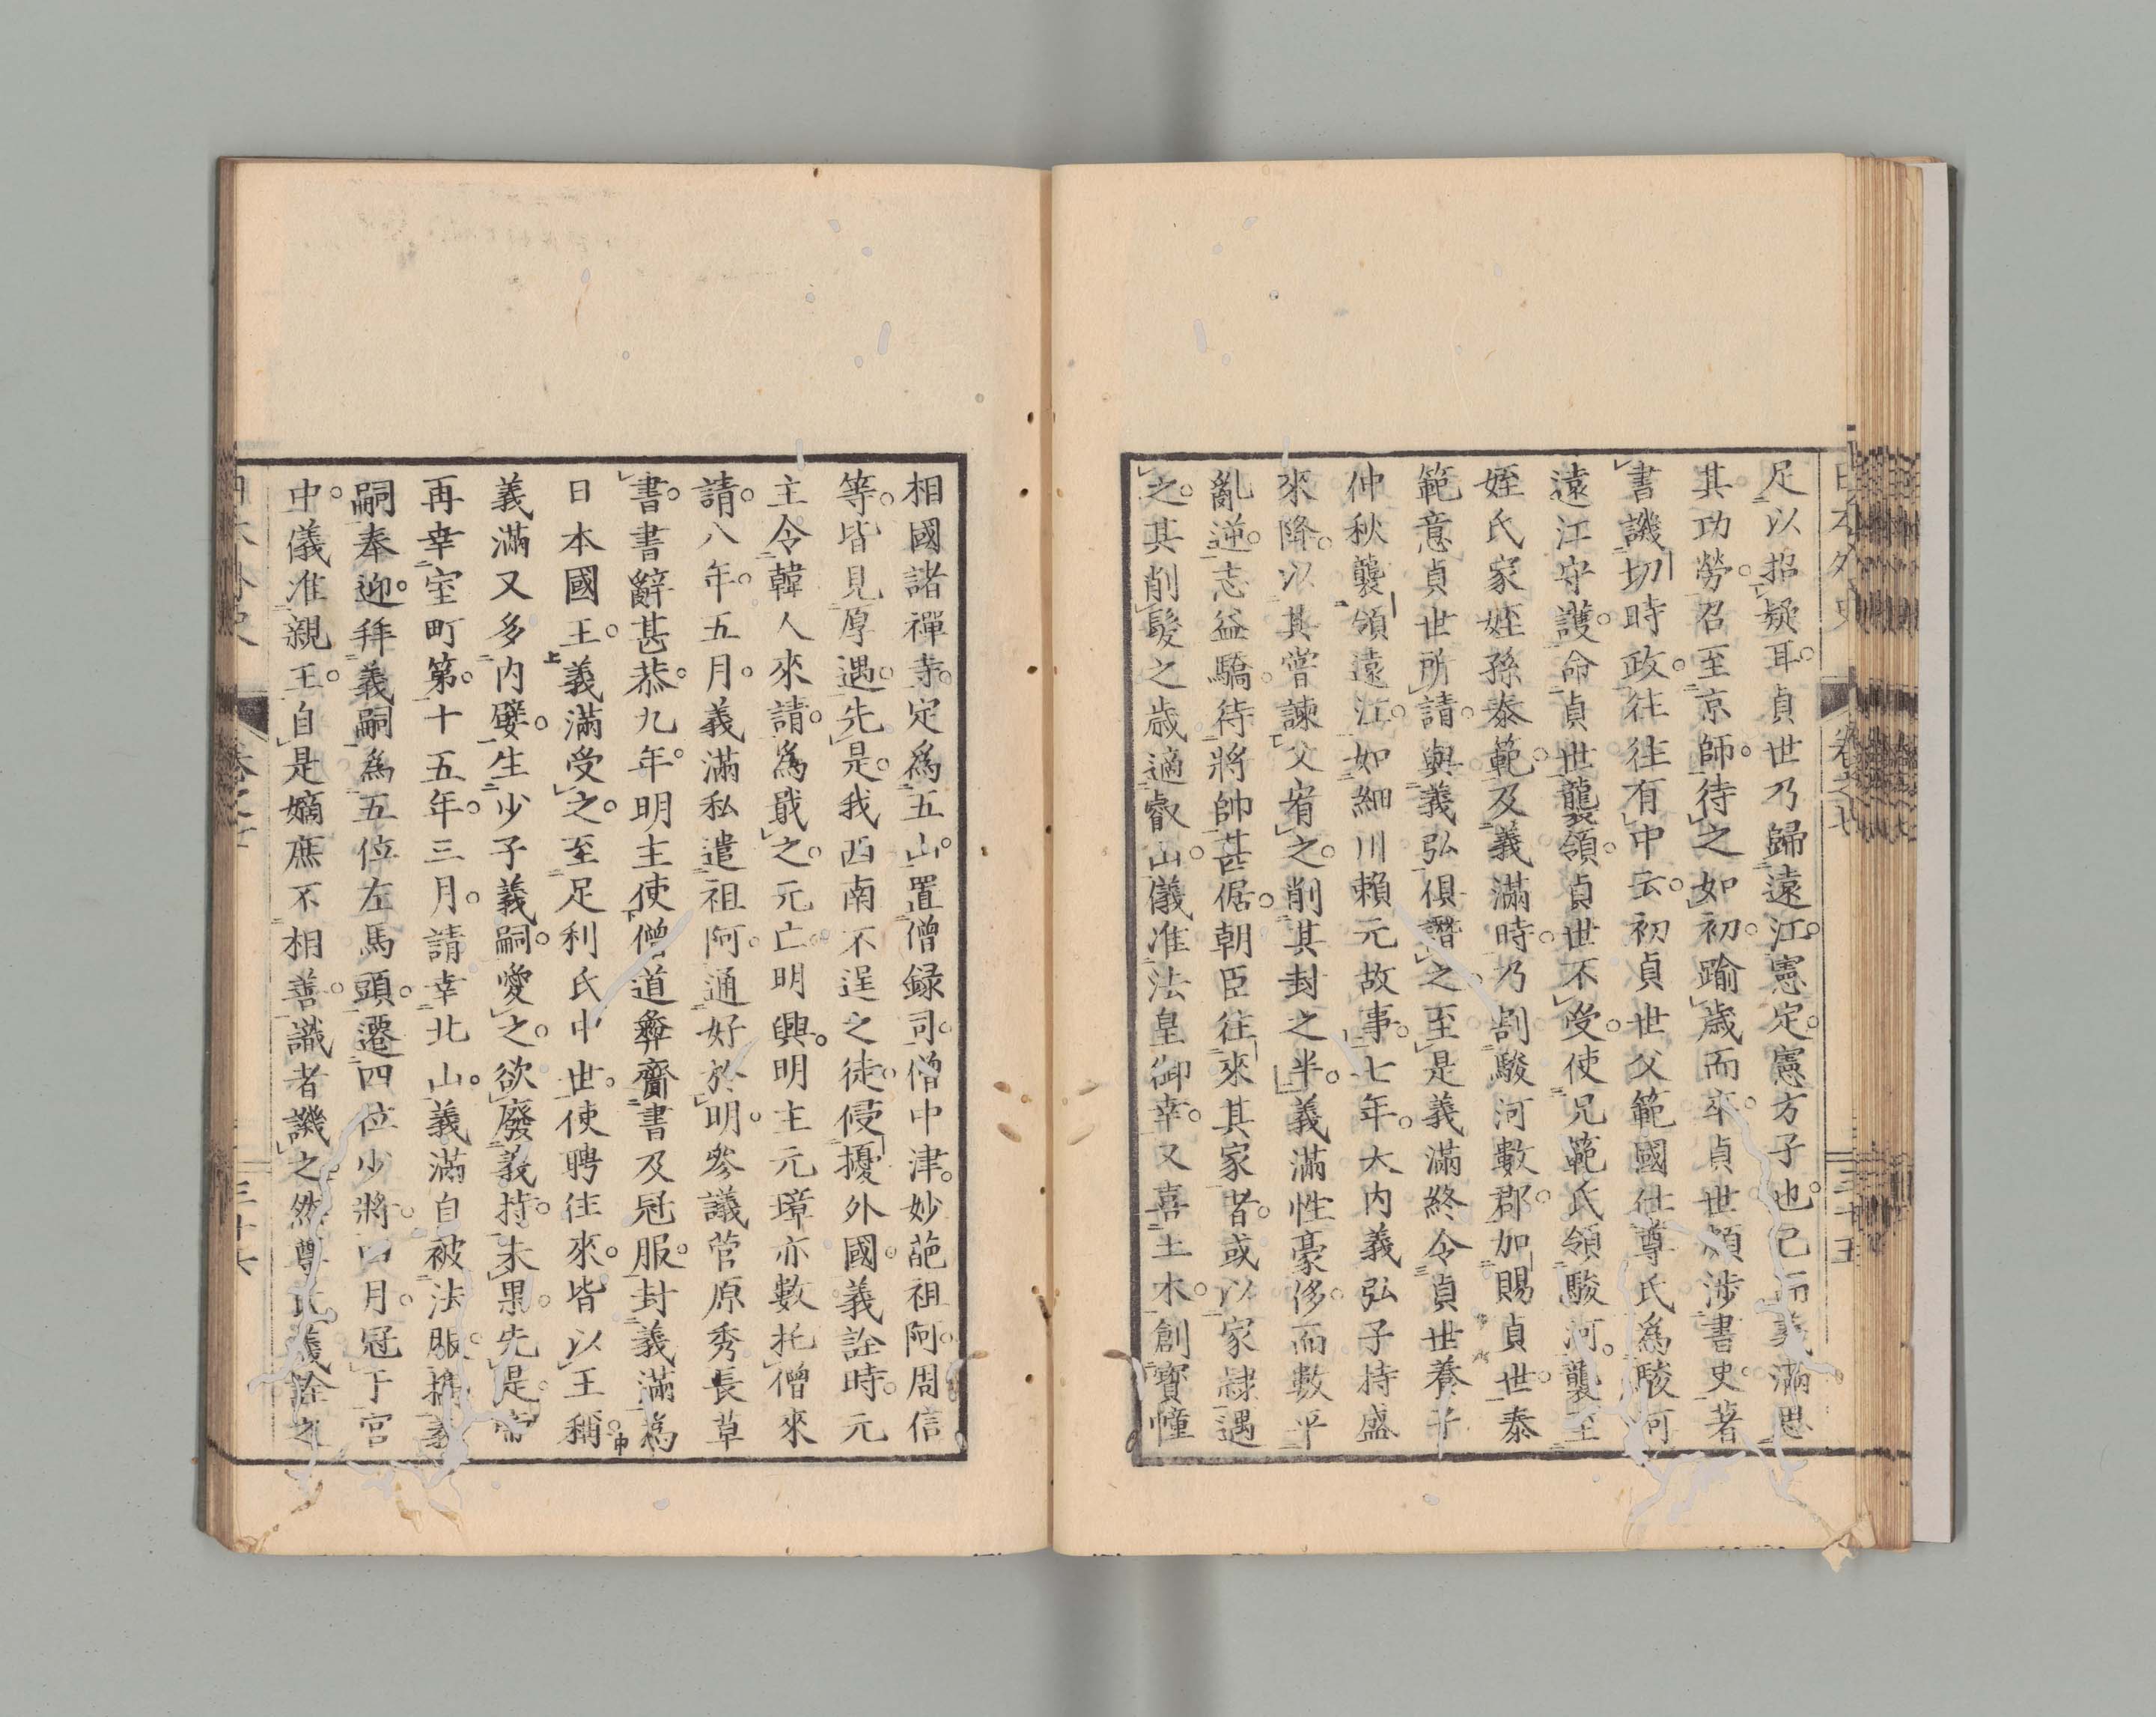 日本外史 卷之七 三十五
足以招疑耳。貞世乃歸遠江。憲定。憲方子也。已而義滿思
其功勞。召至京師。待之如初。踰歲而卒。貞世頗涉書史。著
書譏切時政。往往有中云。初貞世父範國仕尊氏爲駿河
遠江守護。命貞世襲領。貞世不受。使兄範氏領駿河。襲至
姪氏家姪孫泰範。及義滿時。乃割駿河數郡。加賜貞世。泰
範意貞世所請。與義弘俱譖之。至是義滿終令貞世養子
仲秋襲領遠江。如細川賴元故事。七年。大内義弘子持盛
來降。以其嘗諫父宥之。削其封之半。義滿性豪侈。而數平
亂逆。志益驕。待將帥甚倨。朝臣往來其家者。或以家隷遇
之。其削髮之歳。適叡山。儀准法皇御幸。又喜土木。創寶幢
相國諸禪寺。定爲五山。置僧録司。僧中津。妙葩祖阿。周信
等。皆見厚遇。先是。我西南不逞之徒。侵擾外國。義詮時。元
主令韓人來請。爲戢之。元亡。明興。明主元璋亦數托僧來
請。八年。五月。義滿私遣祖阿。通好於明。參議菅原秀長草
書。書辭甚恭。九年。明主使僧道彝齎書及冠服。封義滿爲
日本國王。義滿受之。至足利氏中世。使聘往來。皆以王稱。
義滿又多内嬖。生少子義嗣。愛之。欲廢義持。未果。先是。帝
再幸室町第。十五年。三月。請幸北山。義滿自被法服。攜義
嗣奉迎。拜義嗣爲五位左馬頭。遷四位少將。四月。冠于宮
中。儀准親王。自是嫡庶不相善。識者譏之。然尊氏義詮之